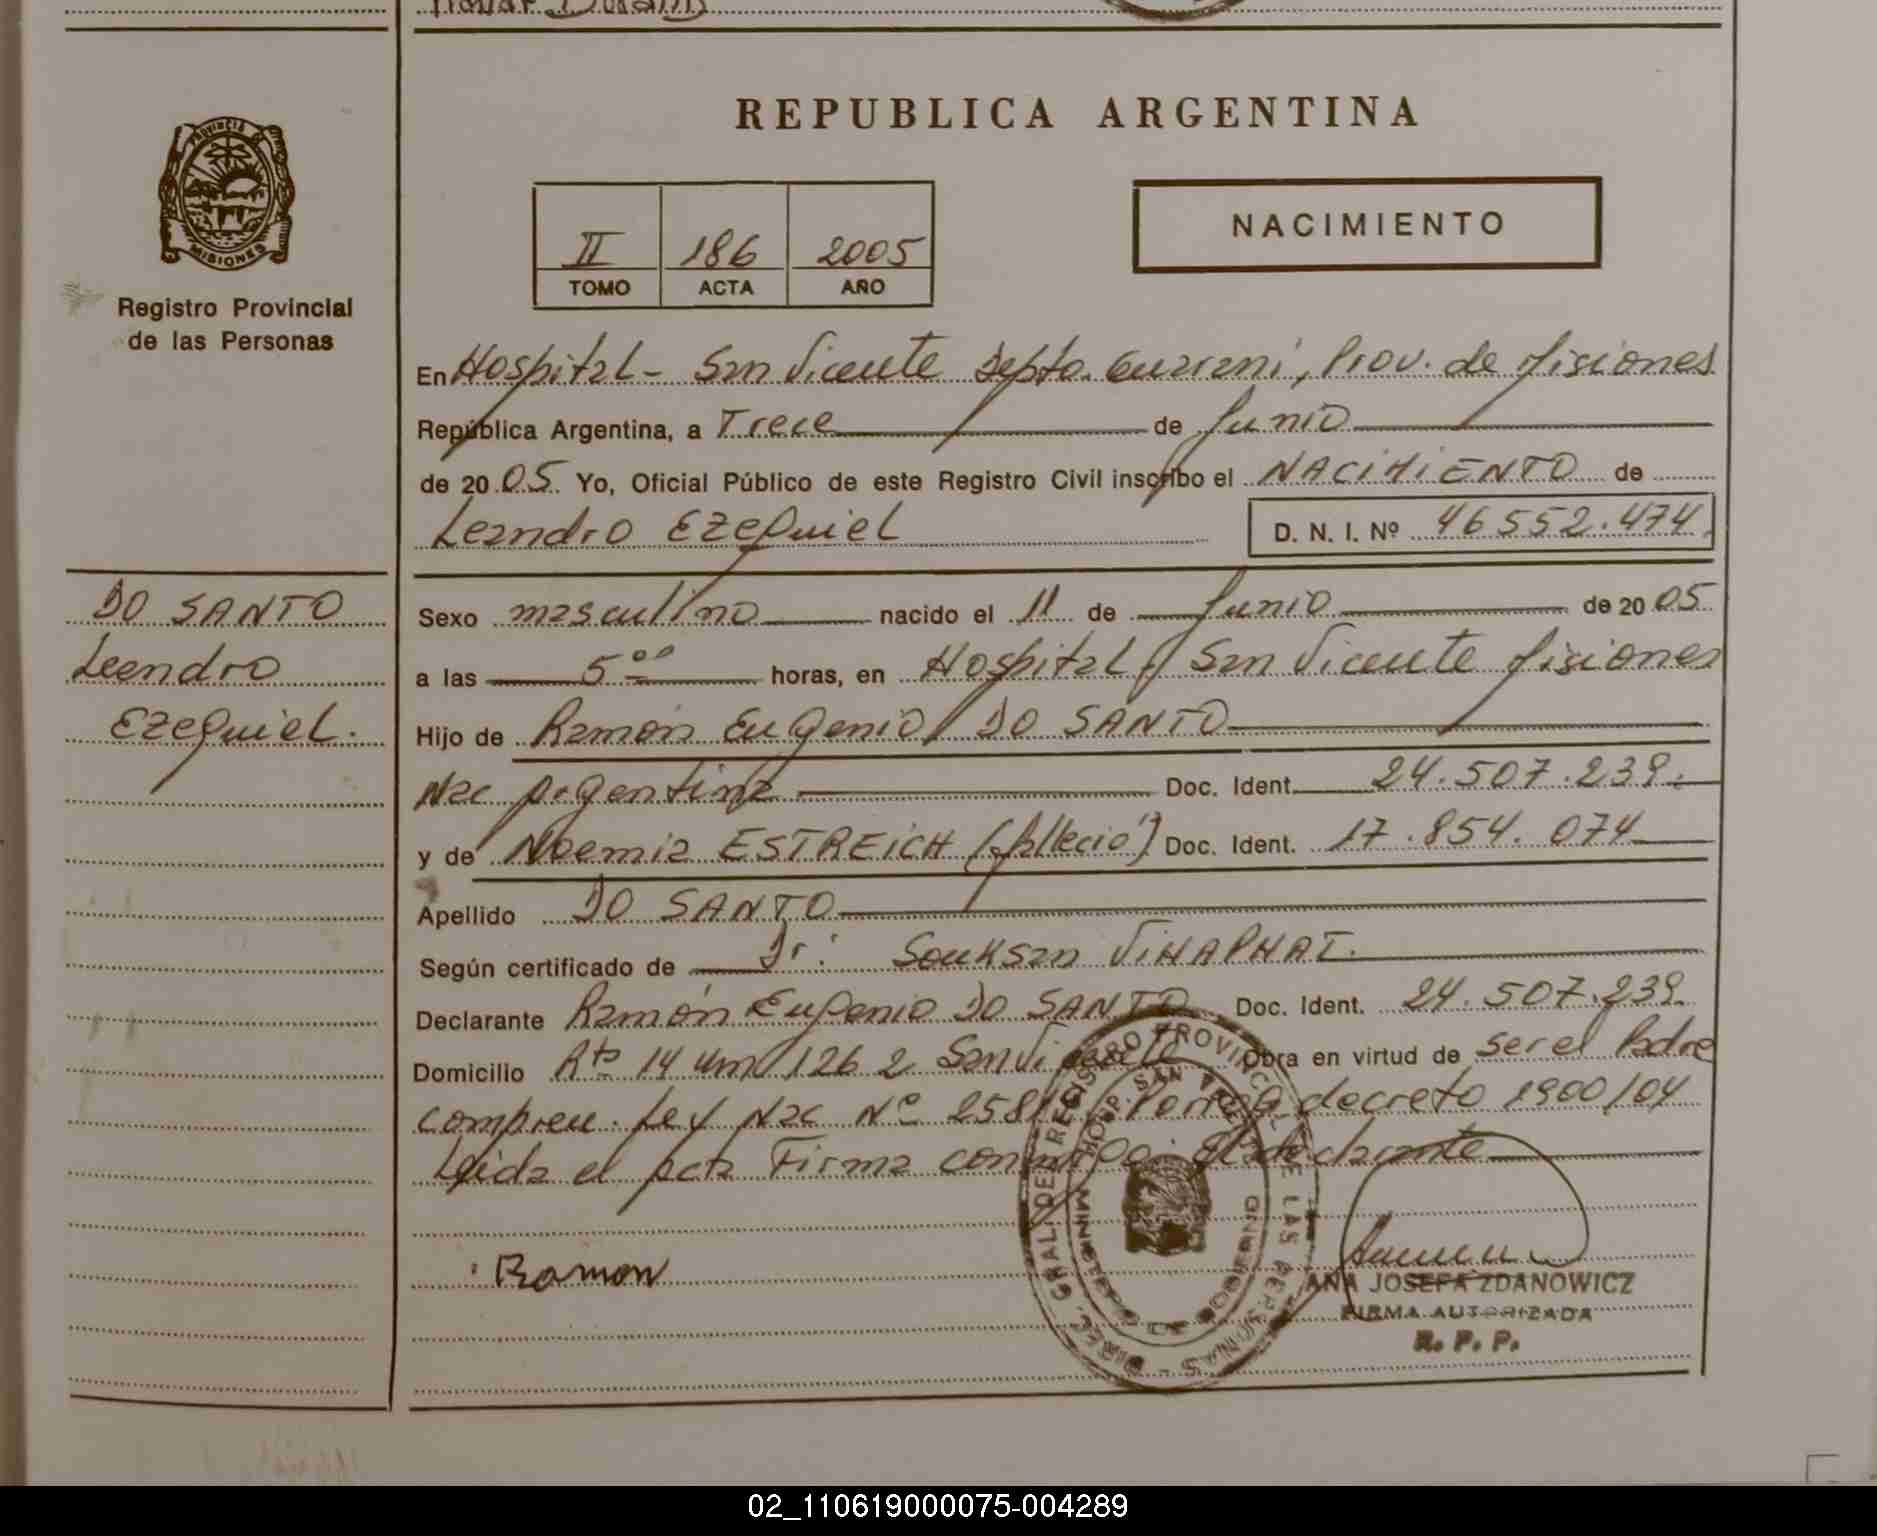 REPUBLICA ARGENTINA
PROVINCIA DE MISIONES
Registro Provincial
de las Personas
II 186 2005
TOMO ACTA AÑO
NACIMIENTO
En Hospital - San Vicente Depto. Guaraní, Prov. de Misiones
República Argentina, a Trece de Junio
de 2005 Yo, Oficial Público de este Registro Civil inscribo el NACIMIENTO de
Leandro Ezequiel D. N. I. Nº 46552.474
DO SANTO
Leandro
Ezequiel.
Sexo masculino nacido el 11 de Junio de 2005
a las 5 ºº horas, en Hospital, San Vicente Misiones
Hijo de Ramón Eugenio DO SANTO
Nac Argentina Doc. Ident. 24.507.239.
y de Noemia ESTREICH (falleció) Doc. Ident. 17.854.074
Apellido DO SANTO
Según certificado de Dr: Souksan VIHAPHAT.
Declarante Ramón Eugenio DO SANTO Doc. Ident. 24.507.239
Domicilio Rta 14 km 126 2 San Vicente Obra en virtud de ser el Padre
compren. Ley Nac Nº decreto 1900/04
Leida el acta Firma conmigo. El declarante
Ramon
DIREC. GRAL. DE REGISTRO PROVINCIAL DE LAS PERSONAS
HOSP. SAN VICENTE
MINISTERIO DE GOBIERNO
ANA JOSEFA ZDANOWICZ
FIRMA AUTORIZADA
R. P. P.
02_110619000075-004289